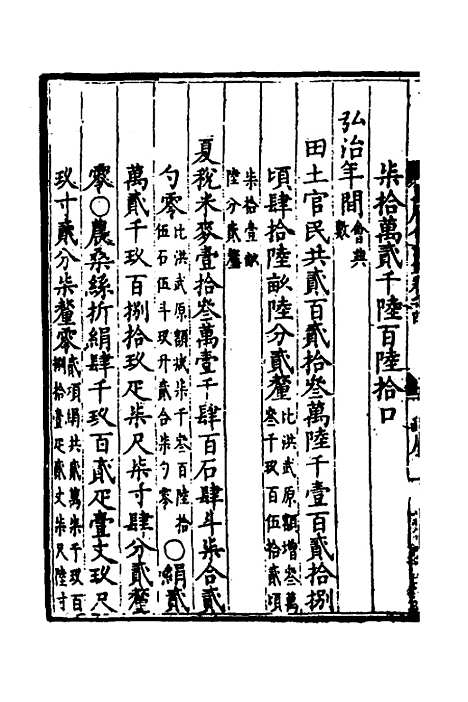 柒拾萬貳千陸百陸拾口
弘治年間會典數
田土官民共貳百貳拾叄萬陸千壹百貳拾捌
頃肆拾陸畝陸分貳釐比洪武原額增叄萬叄千玖百伍拾貳頃
柒拾壹畝陸分貳釐
夏稅米麥壹拾叄萬壹千肆百石肆斗柒合貳
勺零比洪武原額減柒千叄百陸拾伍石伍斗玖升貳合柒勺零〇絹貳
萬貳千玖百捌拾玖疋柒尺柒寸肆分貳釐
零〇農桑絲折絹肆千玖百貳疋壹丈玖尺
玖寸貳分柒釐零貳項絹共貳萬柒千玖百捌拾壹疋貳丈柒尺陸寸